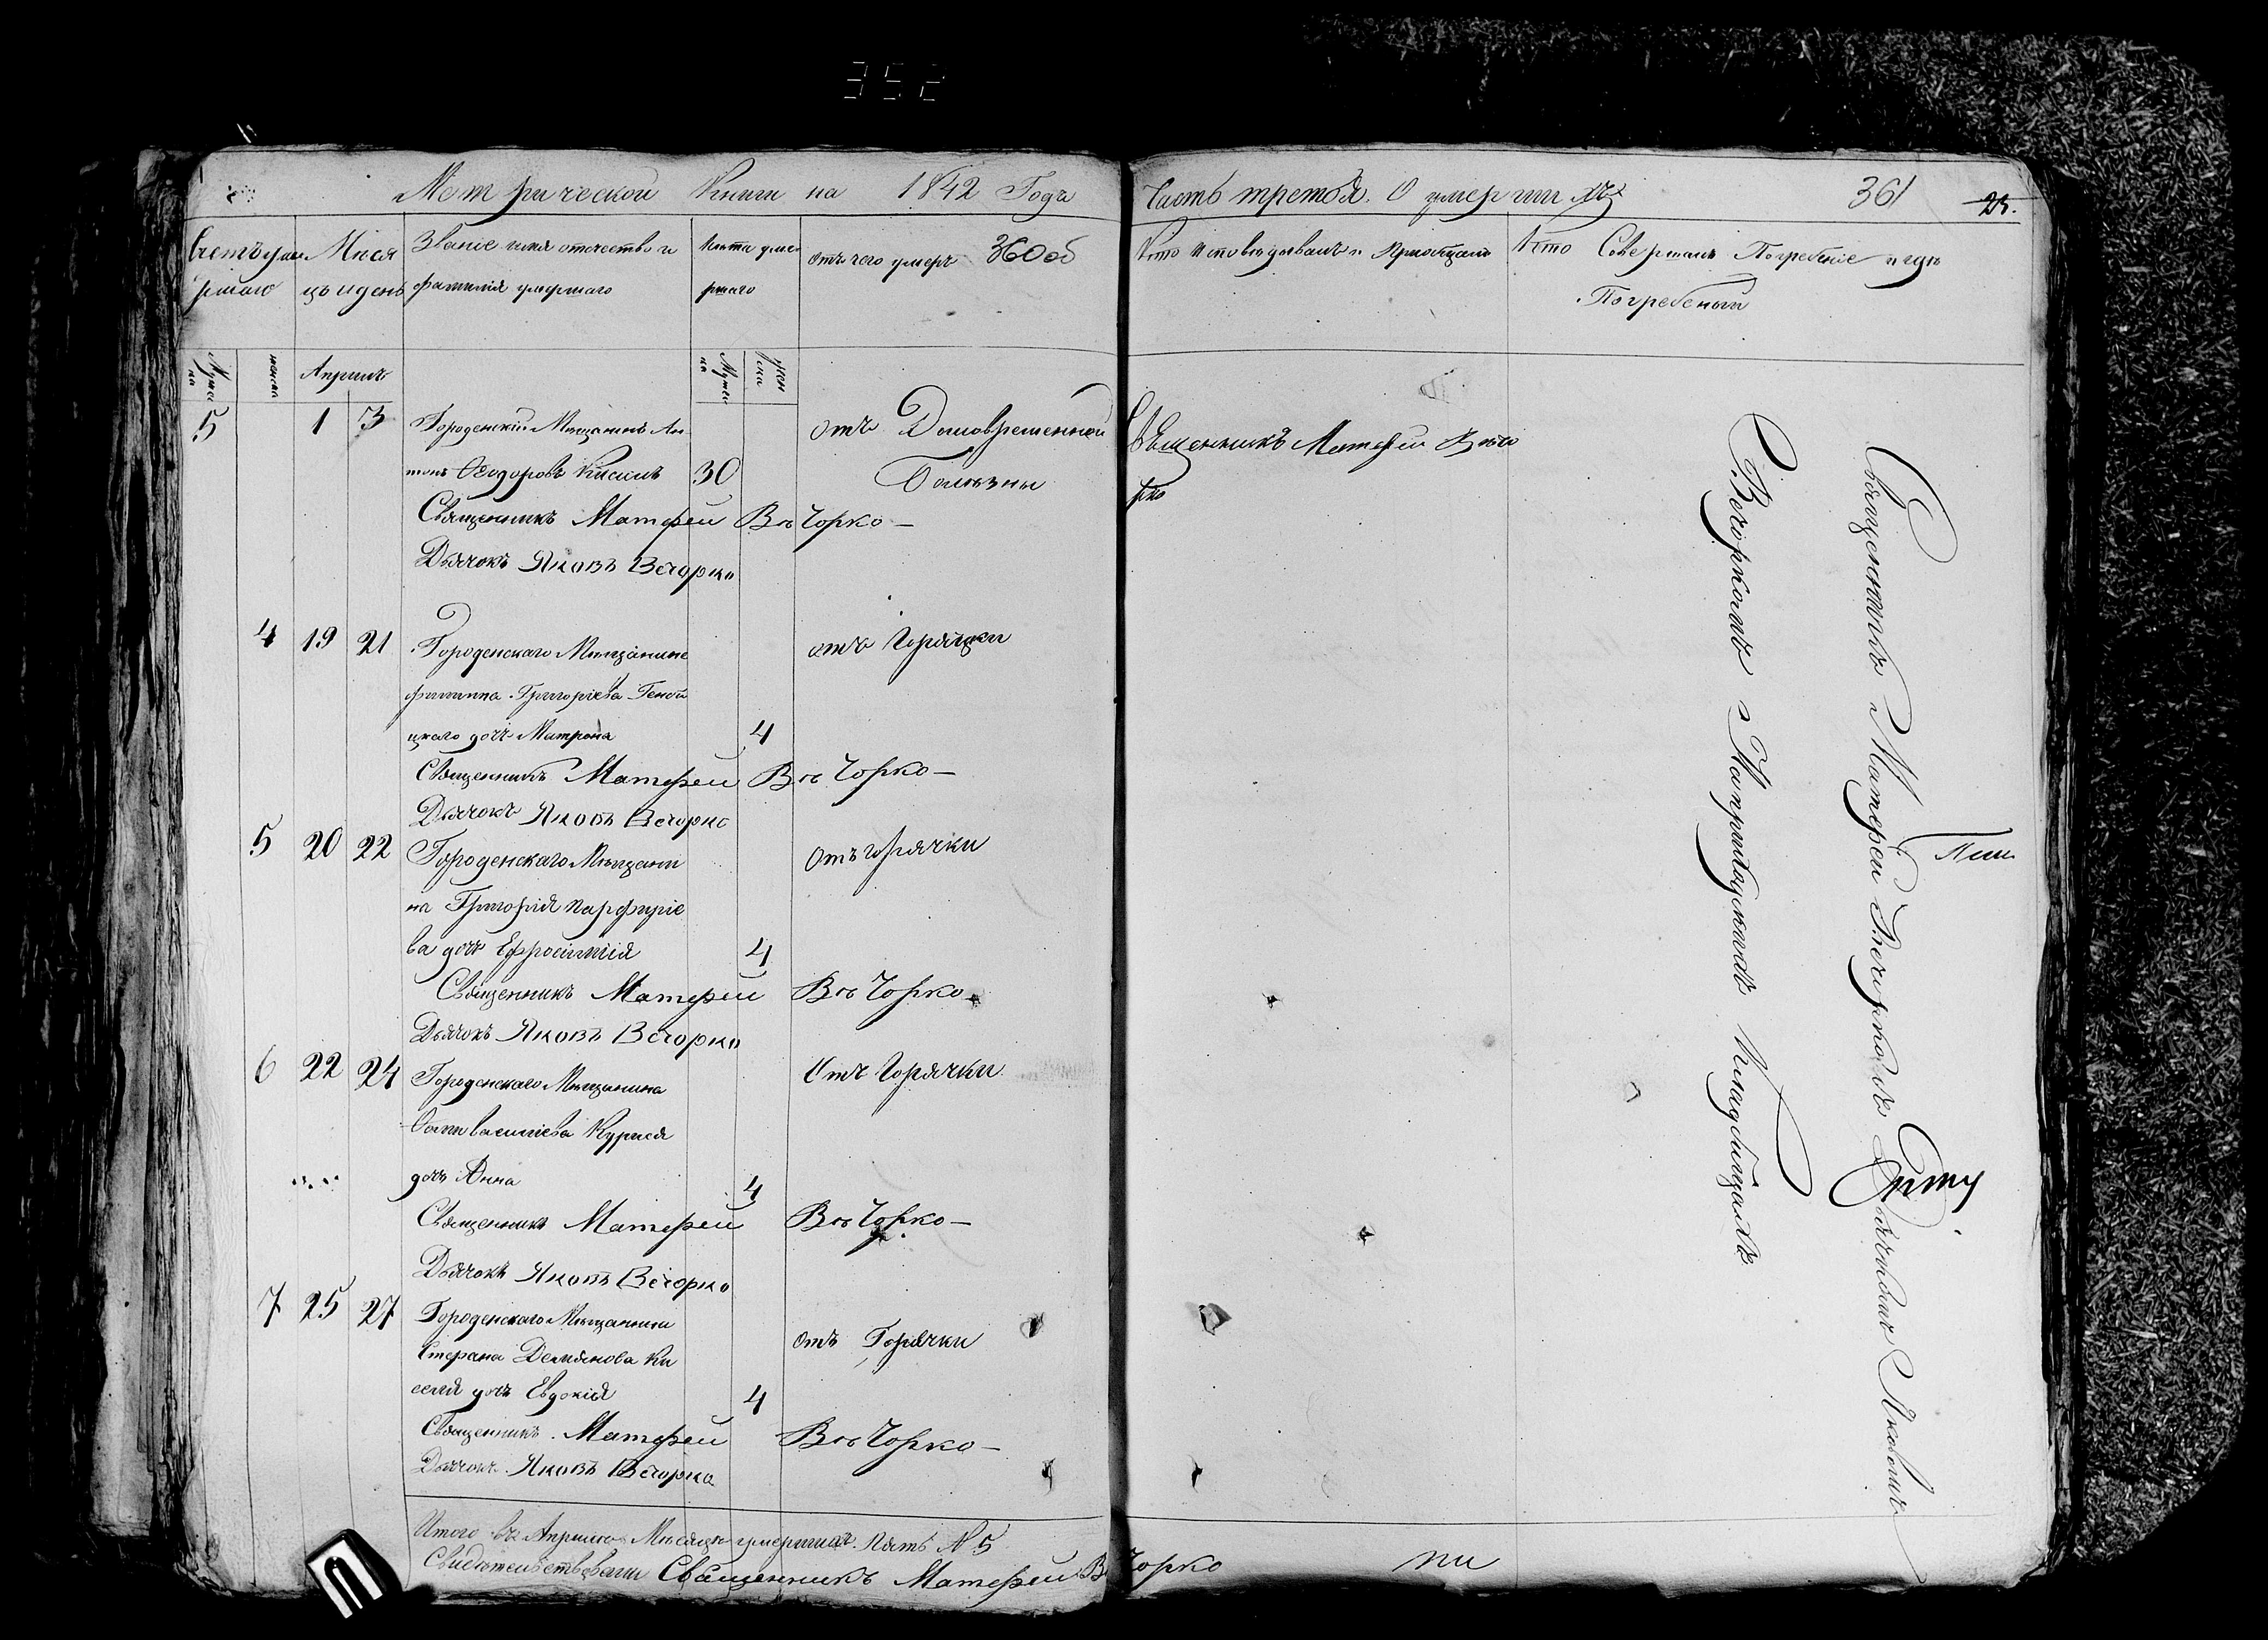 352
Метрической Книги на 1842 Годъ
Часть третья. О умершихъ
361
25.
Счетъ уме
ршаго
Меся
цъ и день
Званіе имя отчество и
фамилія умершаго
Лета уме
ршаго
отъ чего умеръ
360 об
Кто Исповедывалъ и Приобщалъ
Кто Совершалъ Погребеніе и где
Погребены
Мужеска
женска
Апрель
Мужеска
женска
5 1 3 Городенскій Мещанинъ Ан
тонъ Феодоровъ Кисель 30
отъ Долговременной
Болезны
Священникъ Матфеи Вечо
рко
Священникъ Матфеи Вечорко
Дьячокъ Яковъ Вечорко
4 19 21 Городенскаго Мещанина
филиппа Григоріева
цкаго дочь Матрона 4
отъ Горячки
Священникъ Матфеи Вечорко
Дьячокъ Яковъ Вечорко
5 20 22 Городенскаго Мещани
на Григорія Парфиріе
ва дочь Ефросинія 4
Отъ горячки
Священникъ Матфеи Вечорко
Дьячокъ Яковъ Вечорко
6 22 24 Городенскаго Мещанина
васильева
дочь Анна 4
Отъ Горячки
Священникъ Матфеи Вечорко
Дьячокъ Яковъ Вечорко
7 25 27 Городенскаго Мещанина
Стефана Демянова Ки
селя дочь Евдокія 4
отъ Горячки
Священникъ Матфеи Вечорко
Дьячокъ Яковъ Вечорко
Итого въ Апреле Месяце умершихъ пять № 5
Свидетельствовали Священникъ Матфеи Вечорко
Священникъ Матфеи Вечоркомъ Дьячкомъ Яковомъ
Вечоркомъ На приходскомъ Кладбище